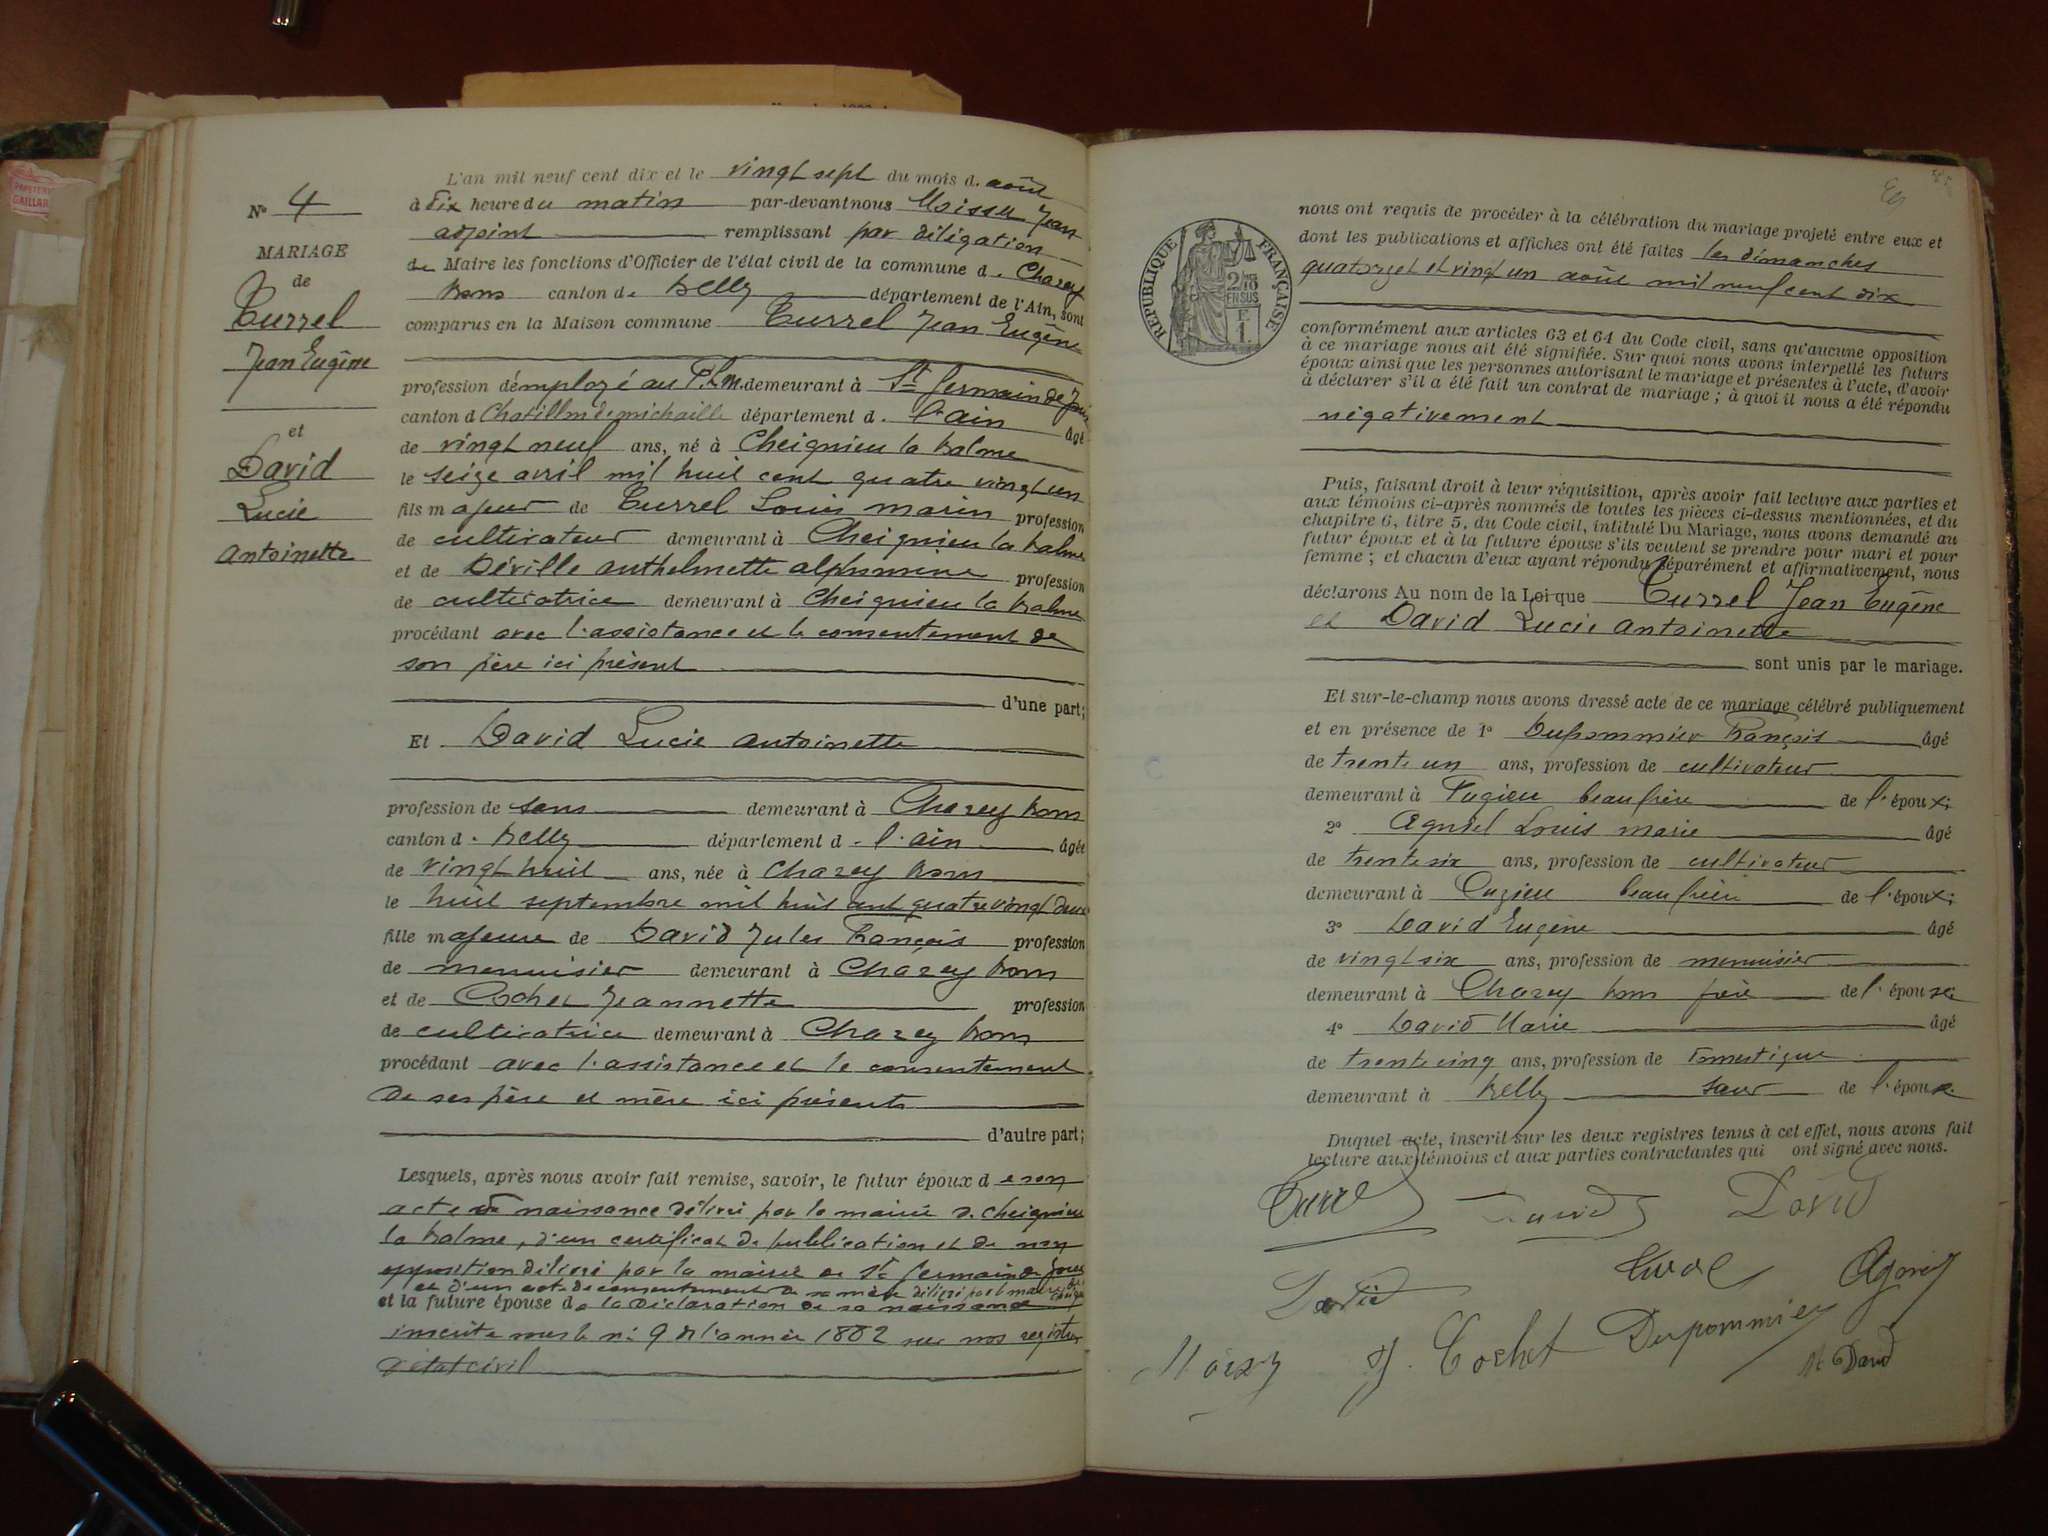 N° 4
MARIAGE
de
Turrel
Jean Eugène
et
David
Lucie
Antoinette
L'an mil neuf cent dix et le vingt sept du mois d. août
à dix heure du matin par-devant nous Jean
adjoint remplissant par délégation
de Maire les fonctions d'Officier de l'état civil de la commune d. Chazey
bons canton de Belley département de l'Ain, sont
comparus en la Maison commune Turrel Jean Eugène
profession d'employé au P.L.M. demeurant à St Germain de Joux
canton d Chatillon de michaille département d. l'ain âgé
de vingt neuf ans, né à Cheignieu la balme
le seize avril mil huit cent quatre vingt un
fils majeur de Turrel Louis marin profession
de cultivateur demeurant à Cheignieu la balme
et de Déville anthelmette alphonsine profession
de cultivatrice demeurant à Cheignieu la balme
procédant avec l'assistance et le consentement de
son père ici présent
d'une part;
Et David Lucie antoinette
profession de sans demeurant à Chazey bons
canton d. Belley département d. l'ain âgée
de vingt huit ans, née à Chazey bons
le huit septembre mil huit cent quatre vingt deux
fille majeure de David Jules François profession
de menuisier demeurant à Chazey bons
et de Cochet Jeannette profession
de cultivatrice demeurant à Chazey bons
procédant avec l'assistance et le consentement
de ses père et mère ici présents
d'autre part;
Lesquels, après nous avoir fait remise, savoir, le futur époux d e son
acte de naissance délivré par la mairie de Cheignieu
la balme, d'un certificat de publication et de non
opposition délivré par la mairie de St Germain de Joux
et d'un acte de consentement de sa mère délivré par le maire de
et la future épouse de la déclaration de sa naissance
inscrite sous le n° 9 de l'année 1882 sur nos registres
d'état civil
RÉPUBLIQUE FRANÇAISE
2/10
EN SUS
F
1
nous ont requis de procéder à la célébration du mariage projeté entre eux et
dont les publications et affiches ont été faites les dimanches
quatorze et vingt un août mil neuf cent dix
conformément aux articles 63 et 64 du Code civil, sans qu'aucune opposition
à ce mariage nous ait été signifiée. Sur quoi nous avons interpellé les futurs
époux ainsi que les personnes autorisant le mariage et présentes à l'acte, d'avoir
à déclarer s'il a été fait un contrat de mariage; à quoi il nous a été répondu
négativement
Puis, faisant droit à leur réquisition, après avoir fait lecture aux parties et
aux témoins ci-après nommés de toutes les pièces ci-dessus mentionnées, et du
chapitre 6, titre 5, du Code civil, intitulé Du Mariage, nous avons demandé au
futur époux et à la future épouse s'ils veulent se prendre pour mari et pour
femme; et chacun d'eux ayant répondu séparément et affirmativement, nous
déclarons Au nom de la Loi que Turrel Jean Eugène
et David Lucie antoinette
sont unis par le mariage.
Et sur-le-champ nous avons dressé acte de ce mariage célébré publiquement
et en présence de 1° Dupommier François âgé
de trente un ans, profession de cultivateur
demeurant à Pugieu beau frère de l'époux;
2° Louis marie âgé
de trente six ans, profession de cultivateur
demeurant à Cuzieu beau frère de l'époux;
3° David Eugène âgé
de vingt six ans, profession de menuisier
demeurant à Chazey bons frère de l'épouse
4° David Marie âgé
de trente cinq ans, profession de domestique
demeurant à Belley sœur de l'épouse
Duquel acte, inscrit sur les deux registres tenus à cet effet, nous avons fait
lecture aux témoins et aux parties contractantes qui ont signé avec nous.
Turrel David David
David Turrel
J. Cochet Dupommier M David